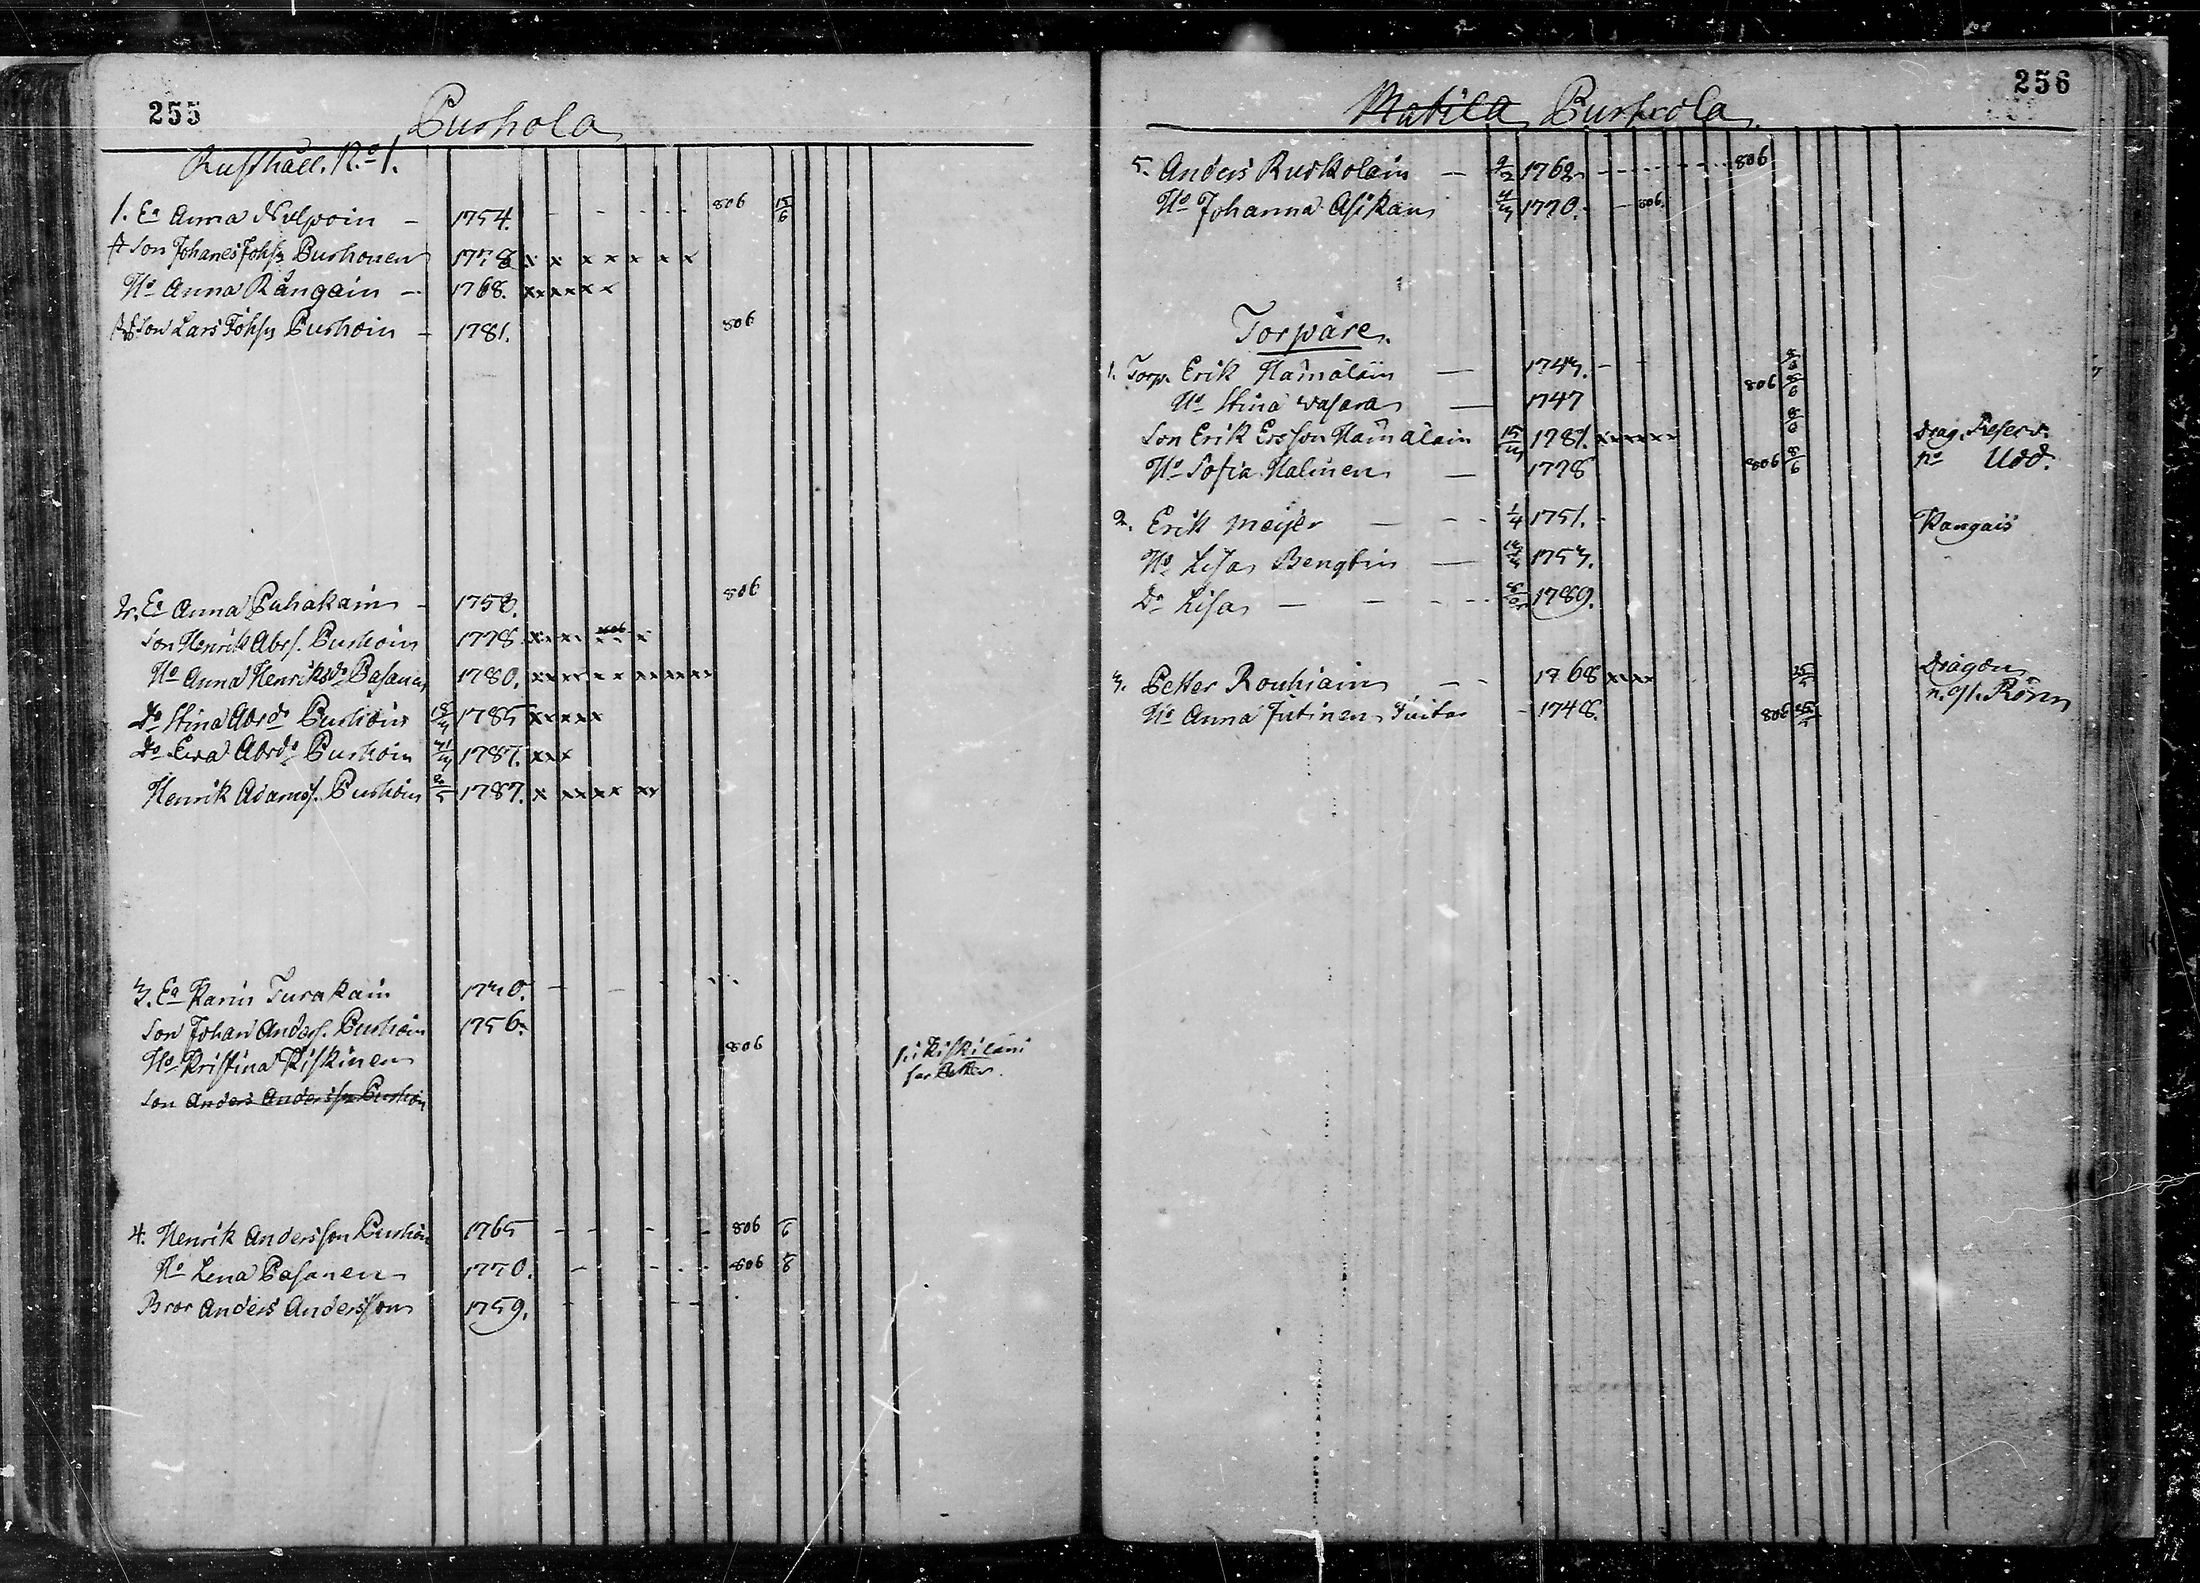 255
Purhola
Rusthåll. No 1.
1. Ea Anna Nulpoin – 1754. 806 15/6
Son Johanes Johss Purhonen 1778 x x x x x x x
Ho Anna Rångain – 1768. xxxxxx
Son Lars Johss Purhoin – 1781. 806
2. Ea Anna Puhakain – 1758. 806
Son Henrik Abrs. Purhoin 1778 xxx x x x
Ho Anna Henriksdr Pasanen 1780. xxxx x x xx xx xx
Dr Stina Abrdr Purhoin 1785 xxxxx
Dr Ewa Abrdr Purhoin 1787. xxx
Henrik Adamss. Purhoin 1787. x xx xx xx
3. Ea Karin Turakain 1730.
Son Johan Anders. Purhoin 1756.
Ho Kristina Kiskinen 806
Son Anders Anderss Purhoin
4. Henrik Andersson Purhoin 1765 – – – – 806
Ho Lena Pasanen 1770. – – – 806
Bror Anders Andersson 1759. – – –
256
Matila Purhola
5. Anders Ruskolain – 9/2 1762 806
Ho Johanna Asikain 1770. 806.
Torpare.
1. Torp. Erik Hämäläin — 1743. – –
Ho Stina Wasara — 1747 806 8/6
Son Erik Ersson Hämäläin 1781. xxxxxx Drag. Reserv.
Ho Sofia Halinen — 1778 806 8/6 no Udd.
2. Erik Meijer — – – 1/4 1751. – Kangais
Ho Lisa Bengtin — 1753.
Dr Lisa – – – 1789.
3. Petter Rouhiain – – 1768 xxxx 25/5 Dragon
Ho Anna Jutinen – 1748. 806 25/5